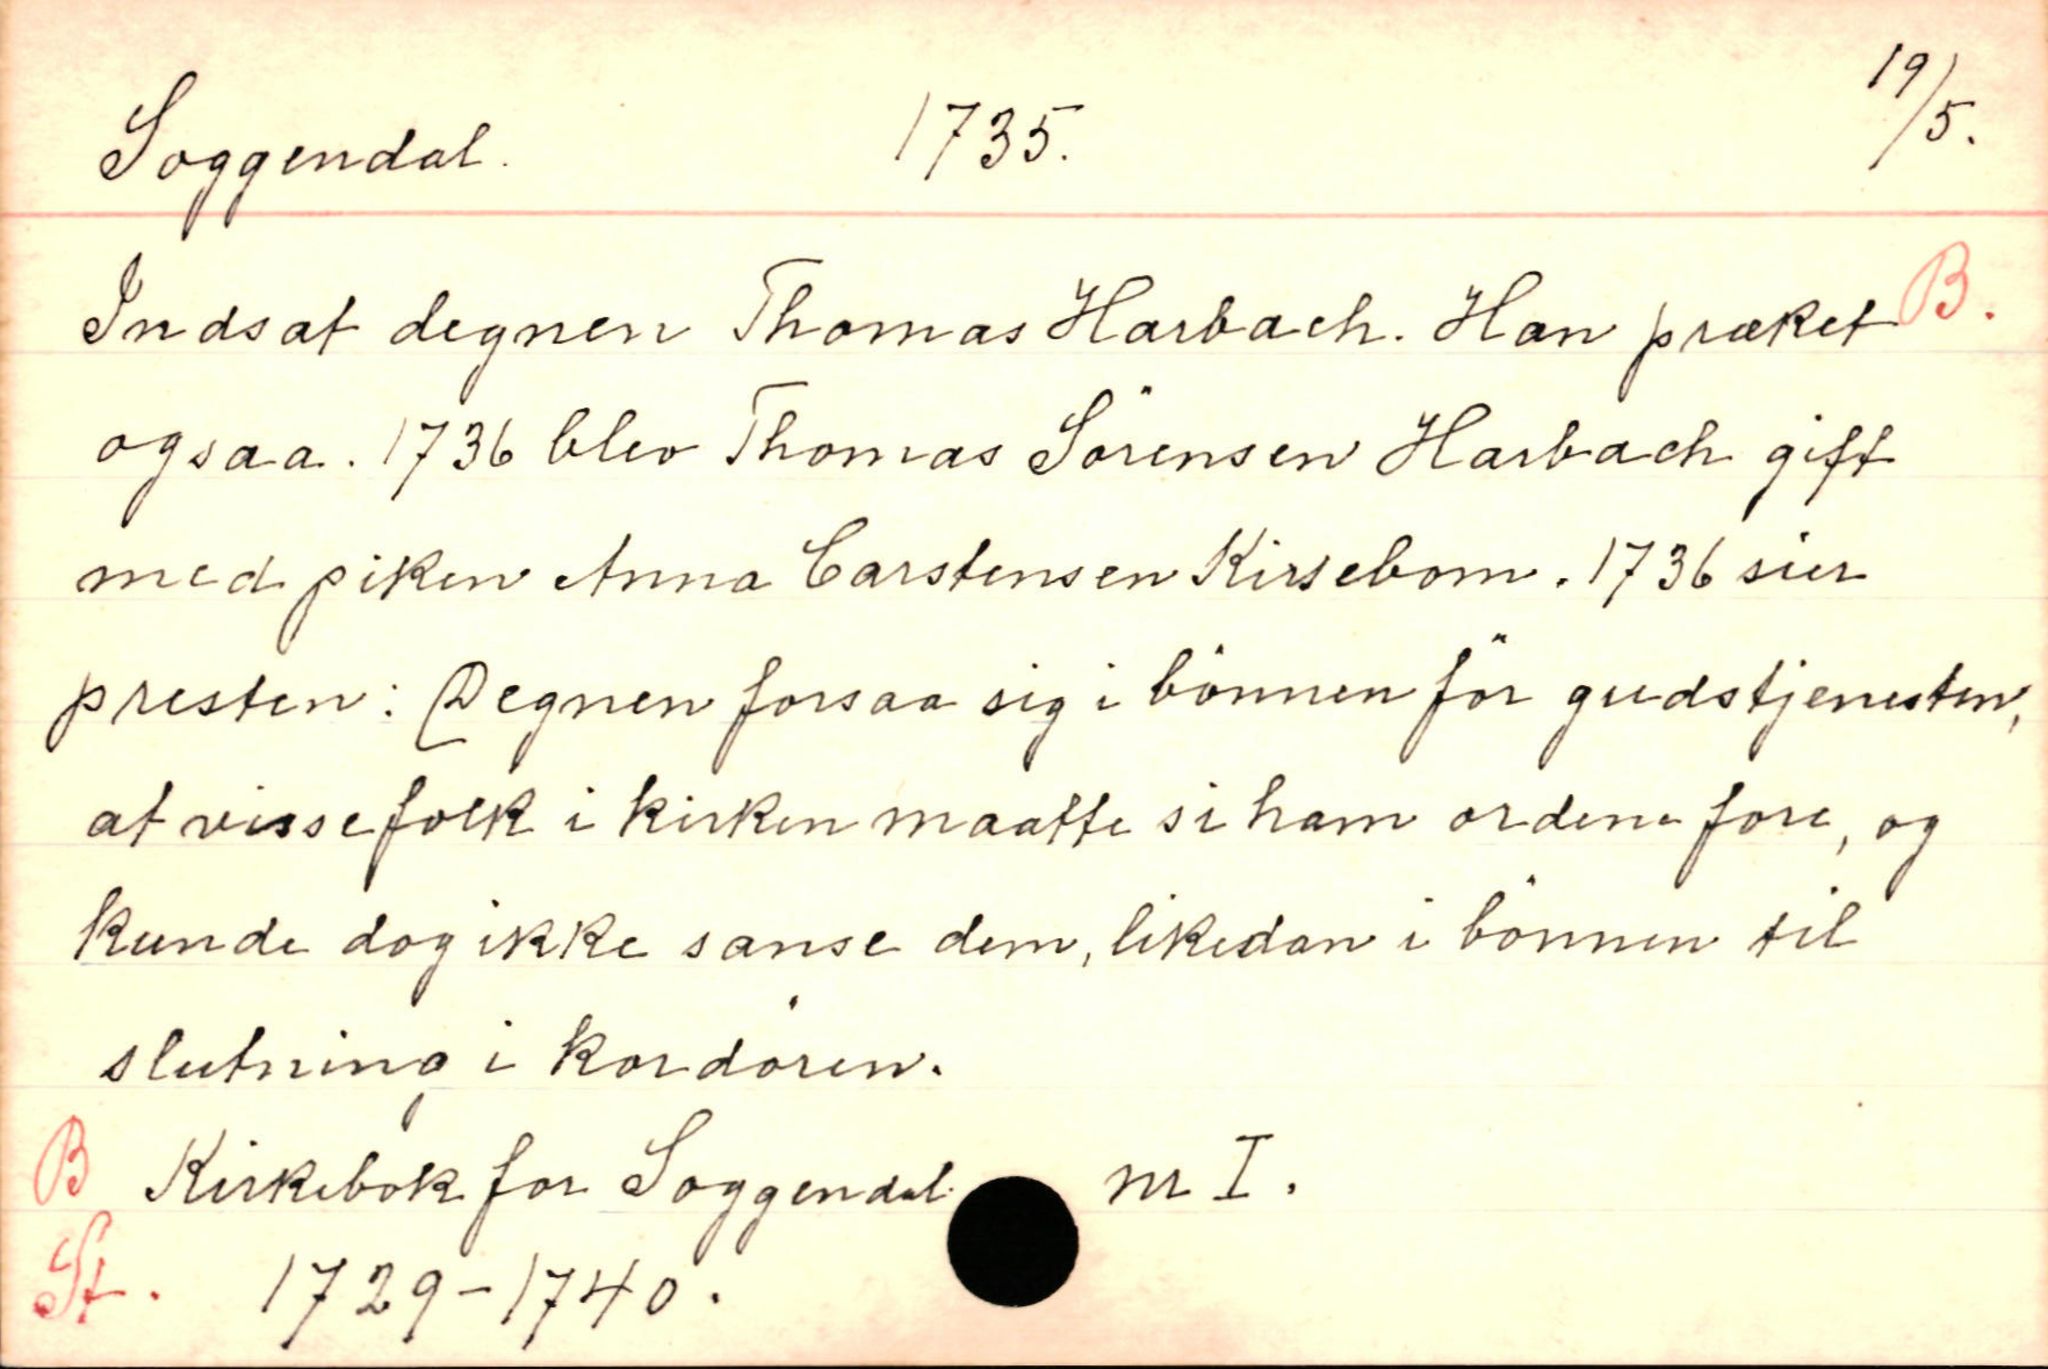 Soggendal. 1735. 19/5.
Indsat degnen Thomas Harbach. Han præket B.
ogsaa. 1736 blev Thomas Sörensen Harbach gift
med piken Anna Carstensen Kirsebom. 1736 sier
presten: Degnen forsaa sig i bönnen för gudstjenesten,
at visse folk i kirken maatte si ham ordene fore, og
kunde dog ikke sanse dem, likedan i bönnen til
slutning i kordören.
B Kirkebok for Soggendal nr I.
St. 1729-1740.